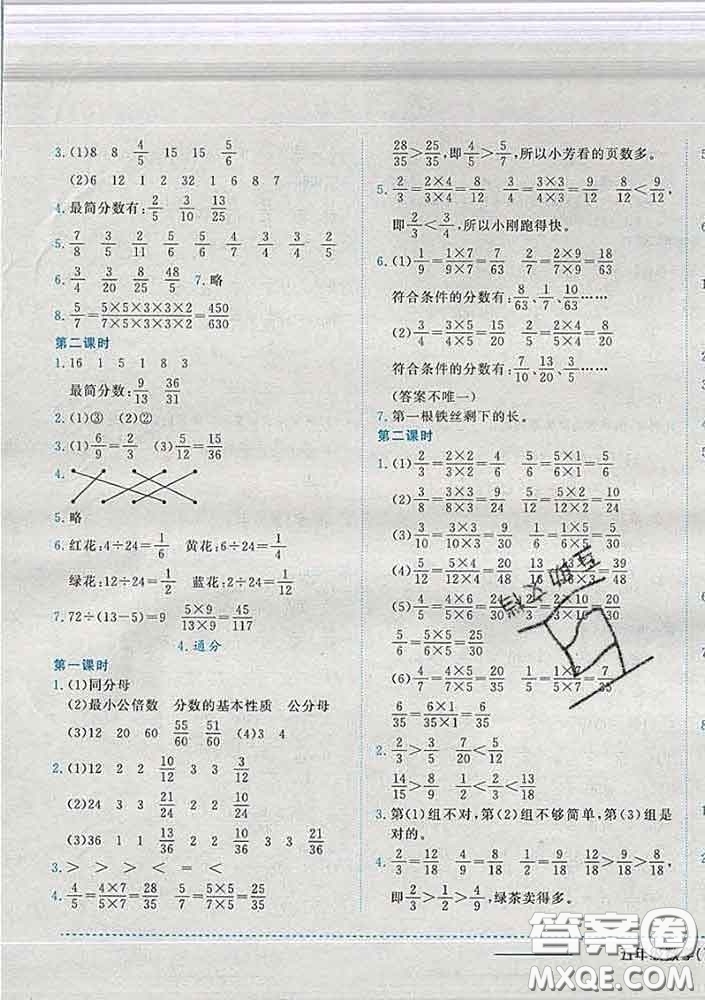 3. (1)8 8 4/5 15 15 5/6
(2)6 12 1 2 32 1 6 8 7
4. 最简分数有: 2/5 3/10 13/25
5. 7/8 3/5 2/11 5/6 6/5 4/7 3/4 2/3 6/5
6. 3/4 3/20 8/5 48/5 7. 略
8. 5/7=5×5×3×3×2/7×5×3×3×2=450/630
第二课时
1. 16 1 5 1 8 3
最简分数: 9/13 36/31
2. (1)③ (2)②
3. (1)6/9=2/3 (2)5/12=15/36
4.
5. 略
6. 红花:4÷24=1/6 黄花:6÷24=1/4
绿花:12÷24=1/2 蓝花:2÷24=1/12
7. 72÷(13-5)=9 5×9/13×9=45/117
4. 通分
第一课时
1. (1)同分母
(2)最小公倍数 分数的基本性质 公分母
(3)12 60 55/60 51/60 (4)3 4
2. (1)12 2 2 10/12 3 3 3/12
(2)24 3 3
(3)36 1 1 13/36 2 2 10/36 3 3 21/36
3. > > < = >
4. 4/5=4×7/5×7=28/35 5/7=5×5/7×5=25/35
28/35>25/35,即4/5>5/7,所以小芳看的页数多。
5. 2/3=2×4/3×4=8/12 3/4=3×3/4×3=9/12 8/12<9/12,
即2/3<3/4,所以小刚跑得快。
6. (1)1/9=1×7/9×7=7/63 2/7=2×9/7×9=18/63
符合条件的分数有:8/63、1/7、10/63……
(2)3/4=3×5/4×5=15/20 3/10=3×2/10×2=6/20
符合条件的分数有:7/20、13/20、7/10……
(答案不唯一)
7. 第一根铁丝剩下的长。
第二课时
1. (1)2/3=2×2/3×2=4/6 5/6=5×1/6×1=5/6
(2)3/8=3×3/8×3=9/24 5/12=5×2/12×2=10/24
(3)3/10=3×3/10×3=9/30 8/15=8×2/15×2=16/30
(4)4/6=4×4/6×4=16/24 5/8=5×3/8×3=15/24
(5)4/5=4×6/5×6=24/30 3/10=3×2/10×2=6/30
5/6=5×5/6×5=25/30
(6)4/5=4×7/5×7=28/35 1/7=1×5/7×5=5/35
6/35=6×1/35×1=6/35
2. 2/3>3/5 7/20<1/2
14/15>8/9 1/2<13/18
3. 第(1)组不对,第(2)组不够简单,第(3)组是
对的。
4. 2/3=12/18 4/9=8/18 1/2=9/18 12/18>9/18>8/18,
即2/3>1/2>4/9,绿茶卖得多。
答案圈
MXQE.COM